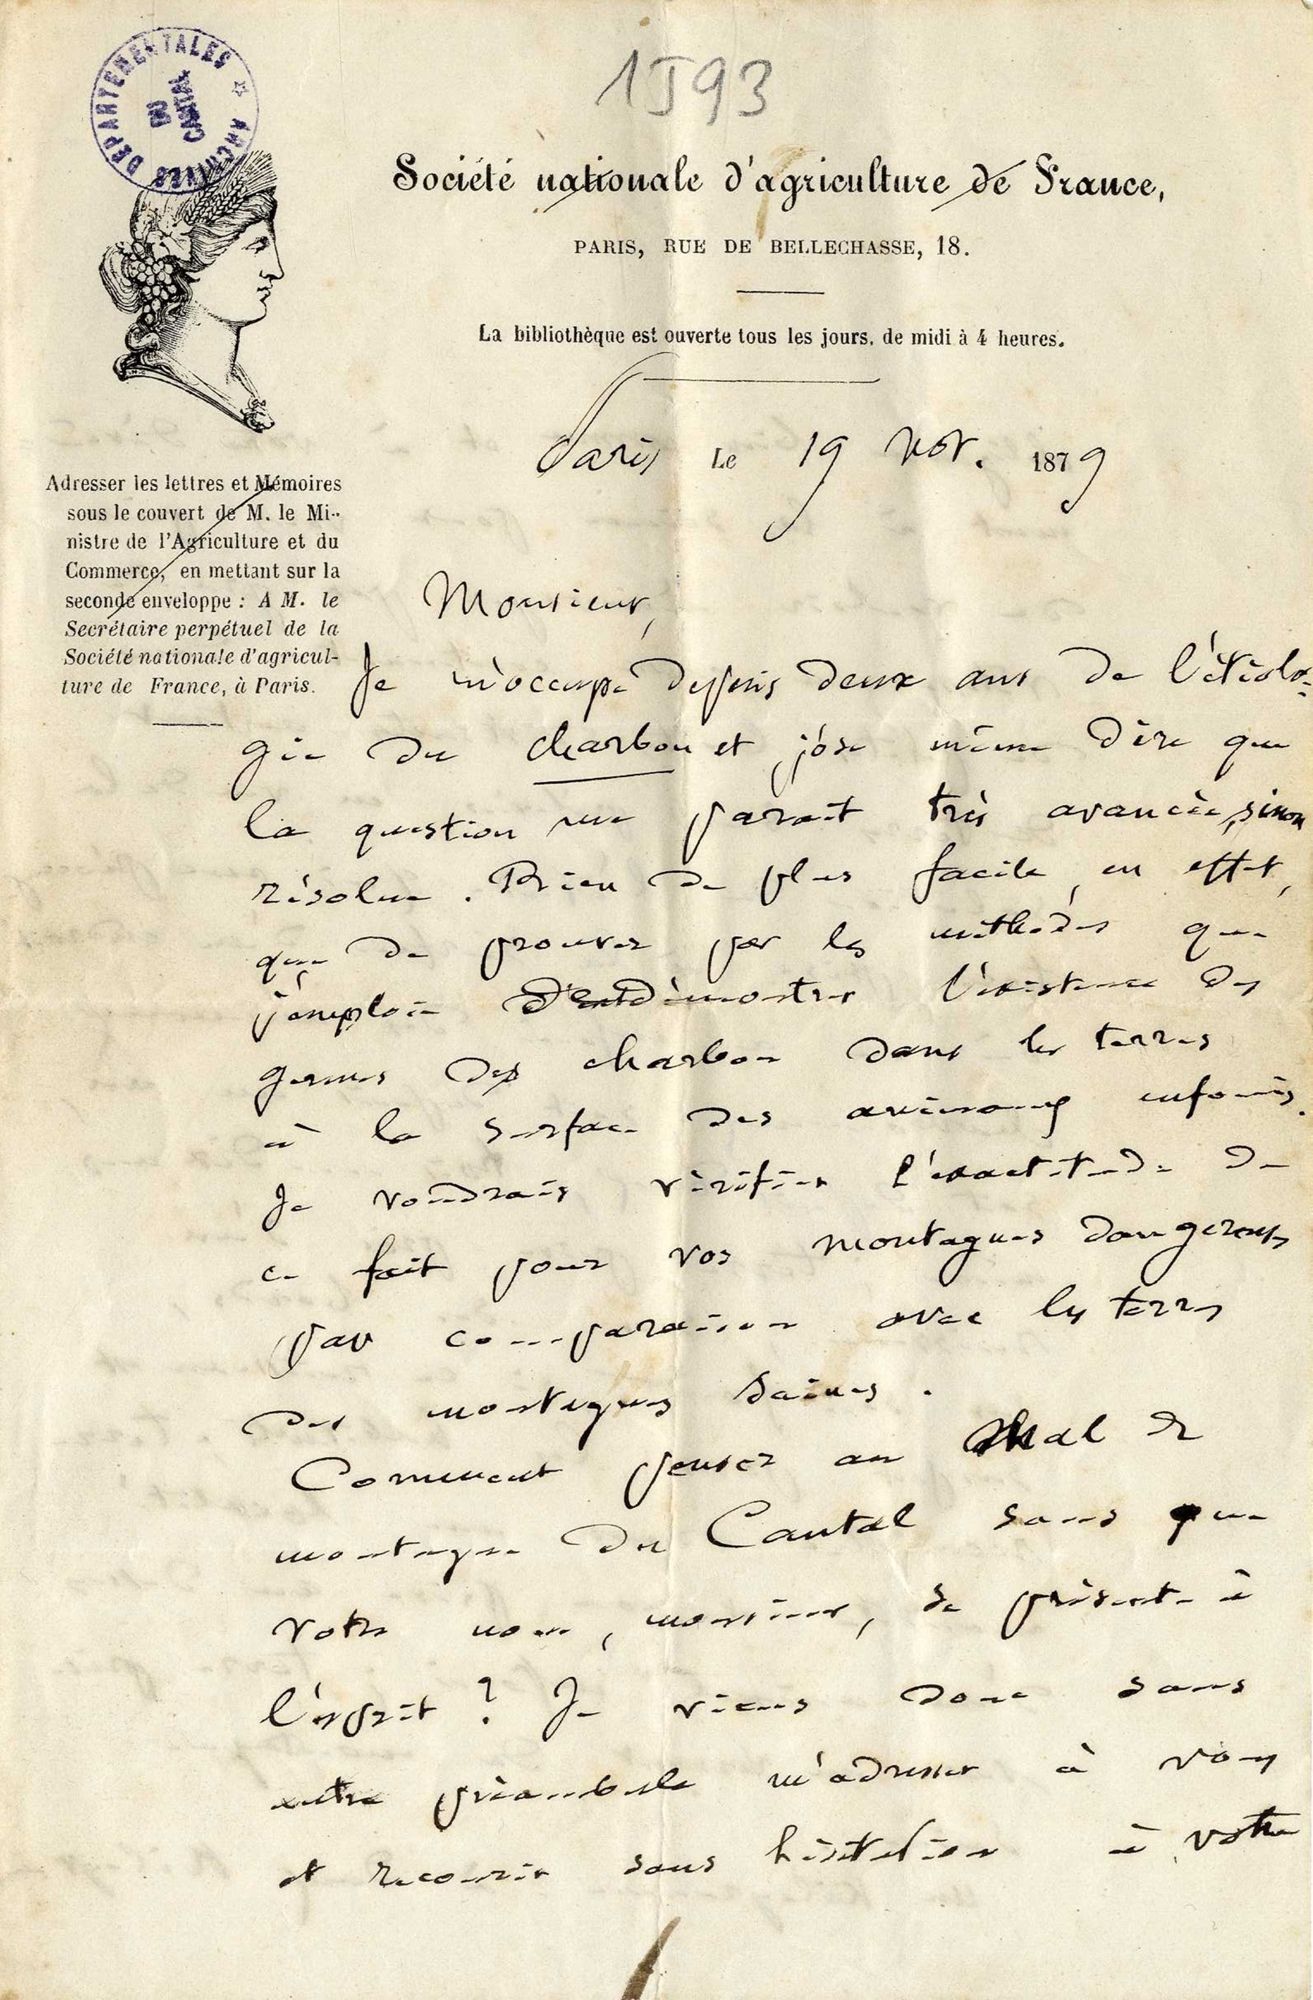 1J93
ARCHIVES DÉPARTEMENTALES
DU
CANTAL
Société nationale d'agriculture de France,
PARIS, RUE DE BELLECHASSE, 18.
La bibliothèque est ouverte tous les jours, de midi à 4 heures.
Paris Le 19 nov. 1879
Adresser les lettres et Mémoires
sous le couvert de M. le Mi-
nistre de l'Agriculture et du
Commerce, en mettant sur la
seconde enveloppe : A M. le
Secrétaire perpétuel de la
Société nationale d'agricul-
ture de France, à Paris.
Monsieur,
Je m'occupe depuis deux ans de l'étiolo-
gie du charbon et j'ose même dire que
la question me parait très avancée, sinon
résolue. Rien de plus facile, en effet,
que de prouver par les méthodes que
j'emploie démontrer l'existence des
germes du charbon dans les terres
à la surface des animaux enfouis.
Je voudrais vérifier l'exactitude de
ce fait pour vos montagnes dangereuses
par comparaison avec les terres
des montagnes saines.
Comment penser au Mal de
montagne du Cantal sans que
votre nom, monsieur, se présente à
l'esprit ? Je viens donc sans
autre préambule m'adresser à vous
et recourir sans hésitation à votre